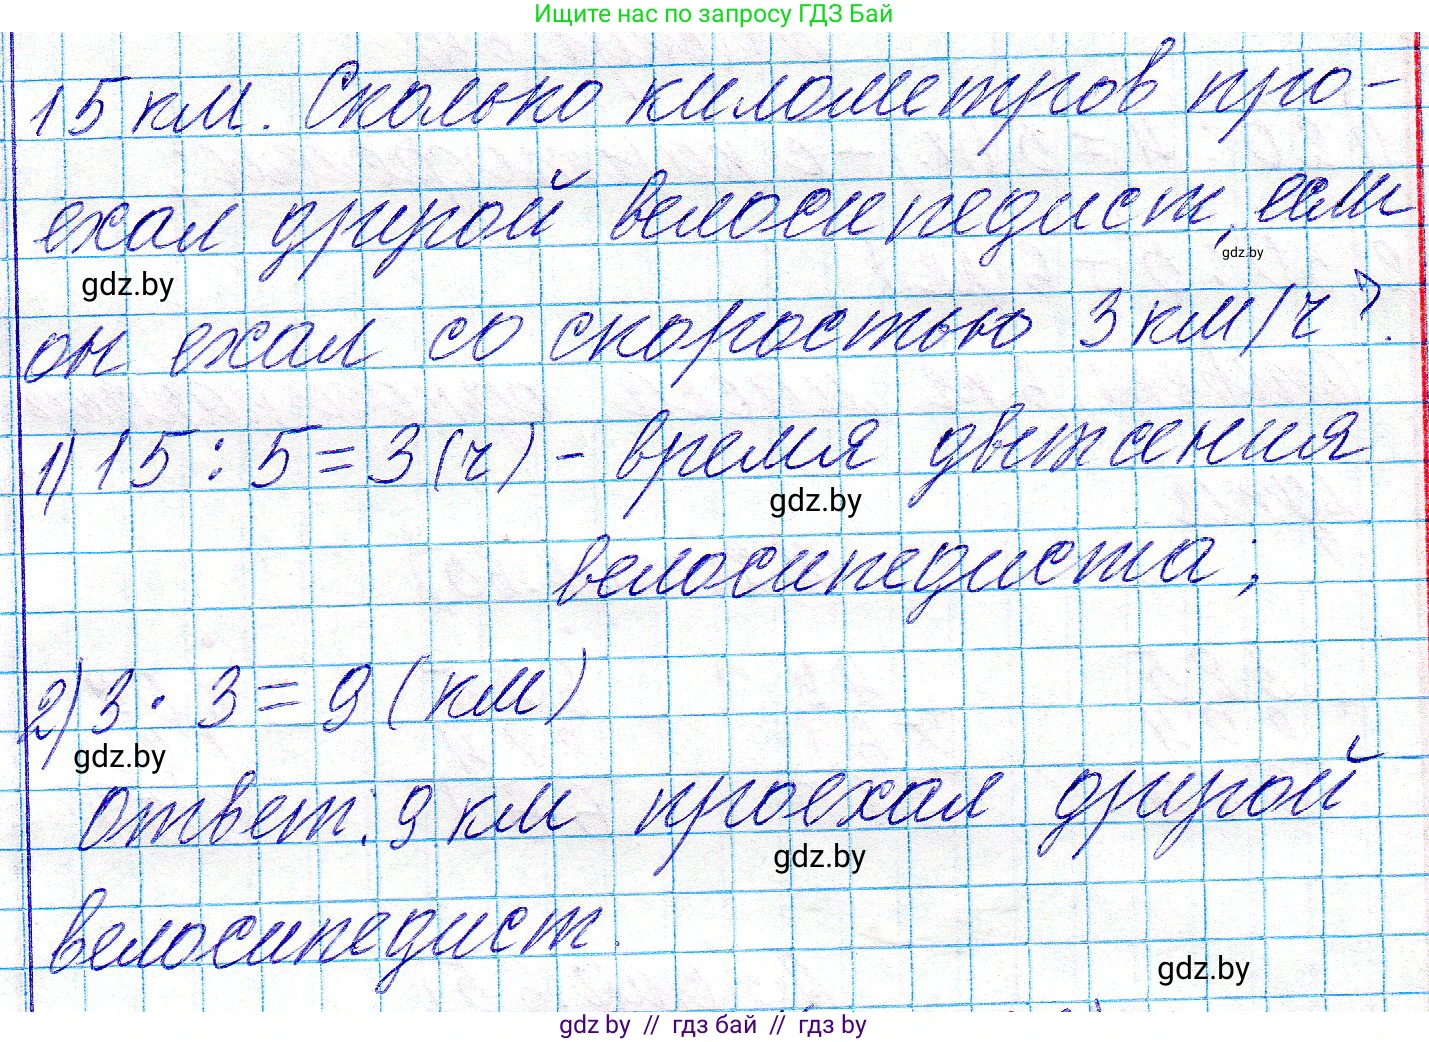 Ищите нас по запросу ГДЗ Бай
15 км. Сколько километров про-
ехал другой велосипедист, если
gdz.by
gdz.by
он ехал со скоростью 3 км/ч?
1) 15 : 5 = 3 (ч) - время движения
gdz.by
велосипедиста;
2) 3 · 3 = 9 (км)
gdz.by
Ответ: 9 км проехал другой
gdz.by
велосипедист.
gdz.by
gdz by // гдз бай // гдз by